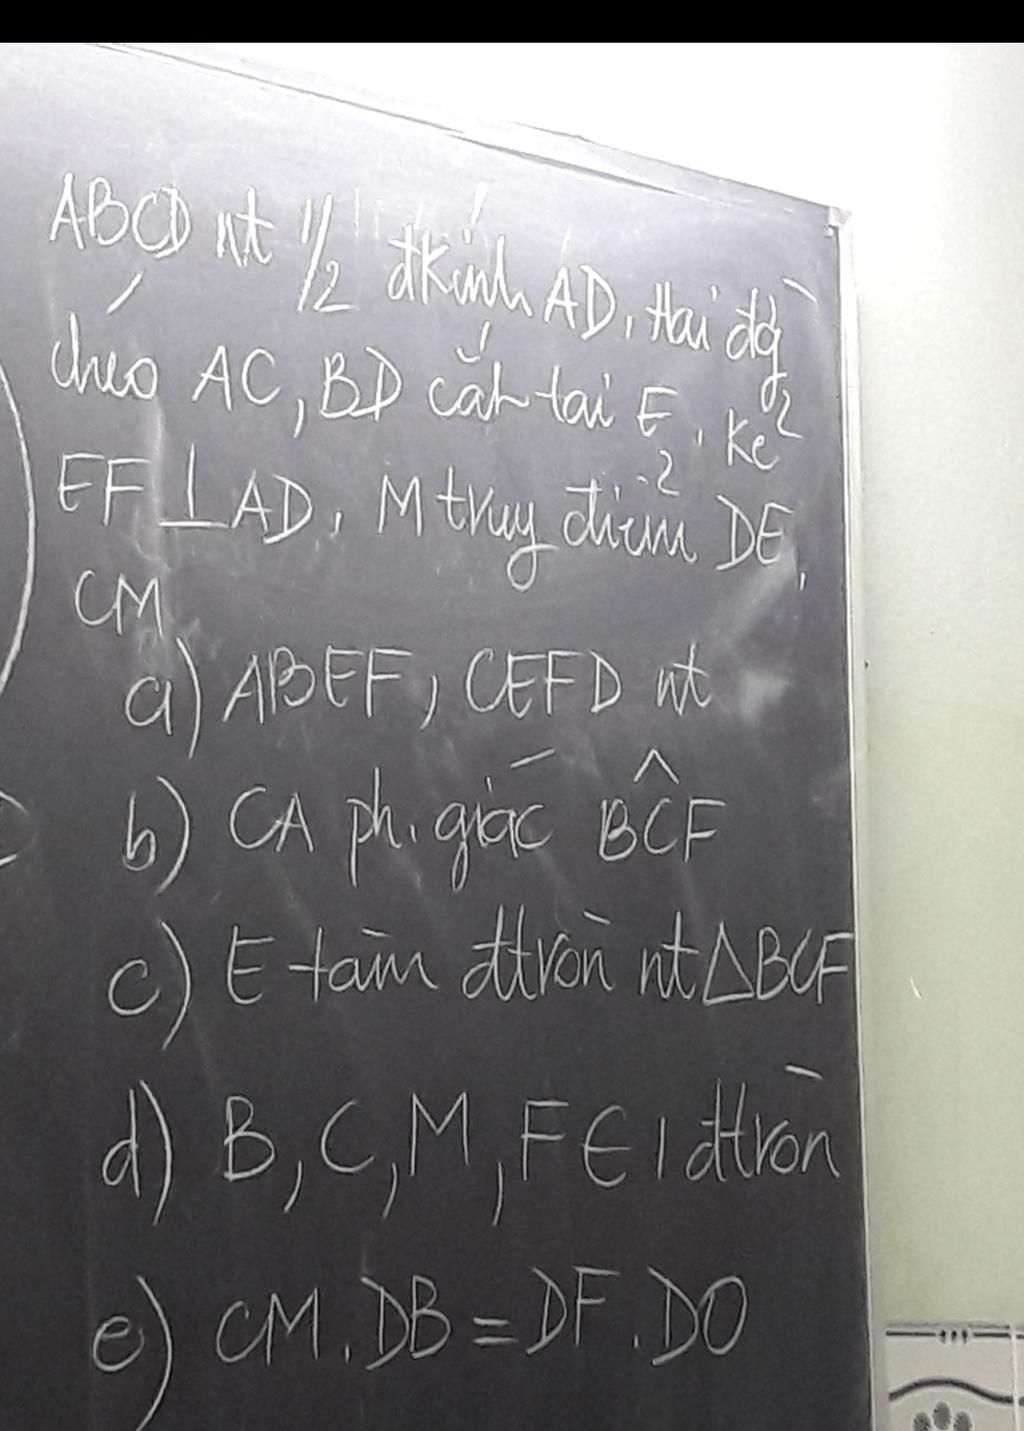 ABCD nt 1/2 đkính AD, Hai đg`
chéo AC, BD cắt tại E. Kẻ
EF ⊥ AD, M trug điểm DE,
CM
a) ABEF, CEFD nt
b) CA ph. giác BĈF
c) E tâm đtròn nt △BCF
d) B, C, M, F ∈ 1 đtròn
e) CM . DB = DF . DO